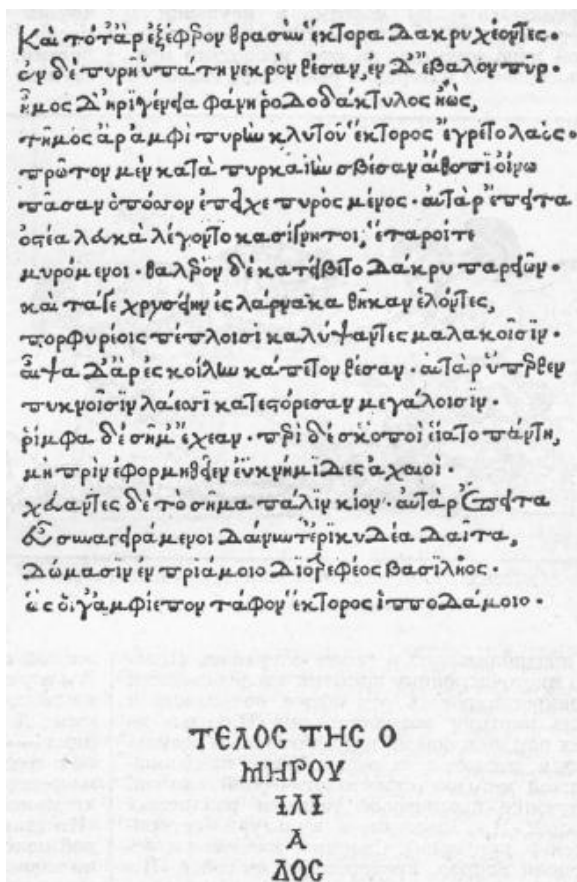 Καὶ τότ' ἄρ' ἐξέφερον θρασὺν ἕκτορα δακρυχέοντες·
ἐν δὲ πυρῆ ὑπάτη νεκρὸν θέσαν, ἐν δ' ἔβαλον πῦρ·
ἦμος δ' ἠριγένεια φάνη ῥοδοδάκτυλος ἠώς,
τῆμος ἄρ' ἀμφὶ πυρὴν κλυτοῦ ἕκτορος ἔγρετο λαός·
πρῶτον μὲν κατὰ πυρκαϊὴν σβέσαν αἴθοπι οἴνω
πᾶσαν ὁπόσσον ἐπεῖχε πυρὸς μένος· αὐτὰρ ἔπειτα
ὀστέα λευκὰ λέγοντο κασίγνητοι, ἕταροί τε
μυρόμενοι· θαλερὸν δὲ κατείβετο δάκρυ παρειῶν·
καὶ τά γε χρυσείην ἐς λάρνακα θῆκαν ἑλόντες,
πορφυρέοις πέπλοισι καλύψαντες μαλακοῖσιν·
αἶψα δ' ἄρ' ἐς κοίλην κάπετον θέσαν· αὐτὰρ ὕπερθεν
πυκνοῖσιν λάεσσι κατεστόρεσαν μεγάλοισιν·
ῥίμφα δὲ σῆμ' ἔχεαν· περὶ δὲ σκοποὶ εἵατο πάντη,
μὴ πρὶν ἐφορμηθεῖεν ἐϋκνήμιδες ἀχαιοί·
χεύαντες δὲ τὸ σῆμα πάλιν κίον· αὐτὰρ ἔπειτα
εὖ συναγειράμενοι δαίνυντ' ἐρικυδέα δαῖτα,
δώμασιν ἐν πριάμοιο διοτρεφέος βασιλῆος·
ὡς οἵ γ' ἀμφίεπον τάφον ἕκτορος ἱπποδάμοιο·
ΤΕΛΟΣ ΤΗΣ Ο
ΜΗΡΟΥ
ΙΛΙ
Α
ΔΟΣ